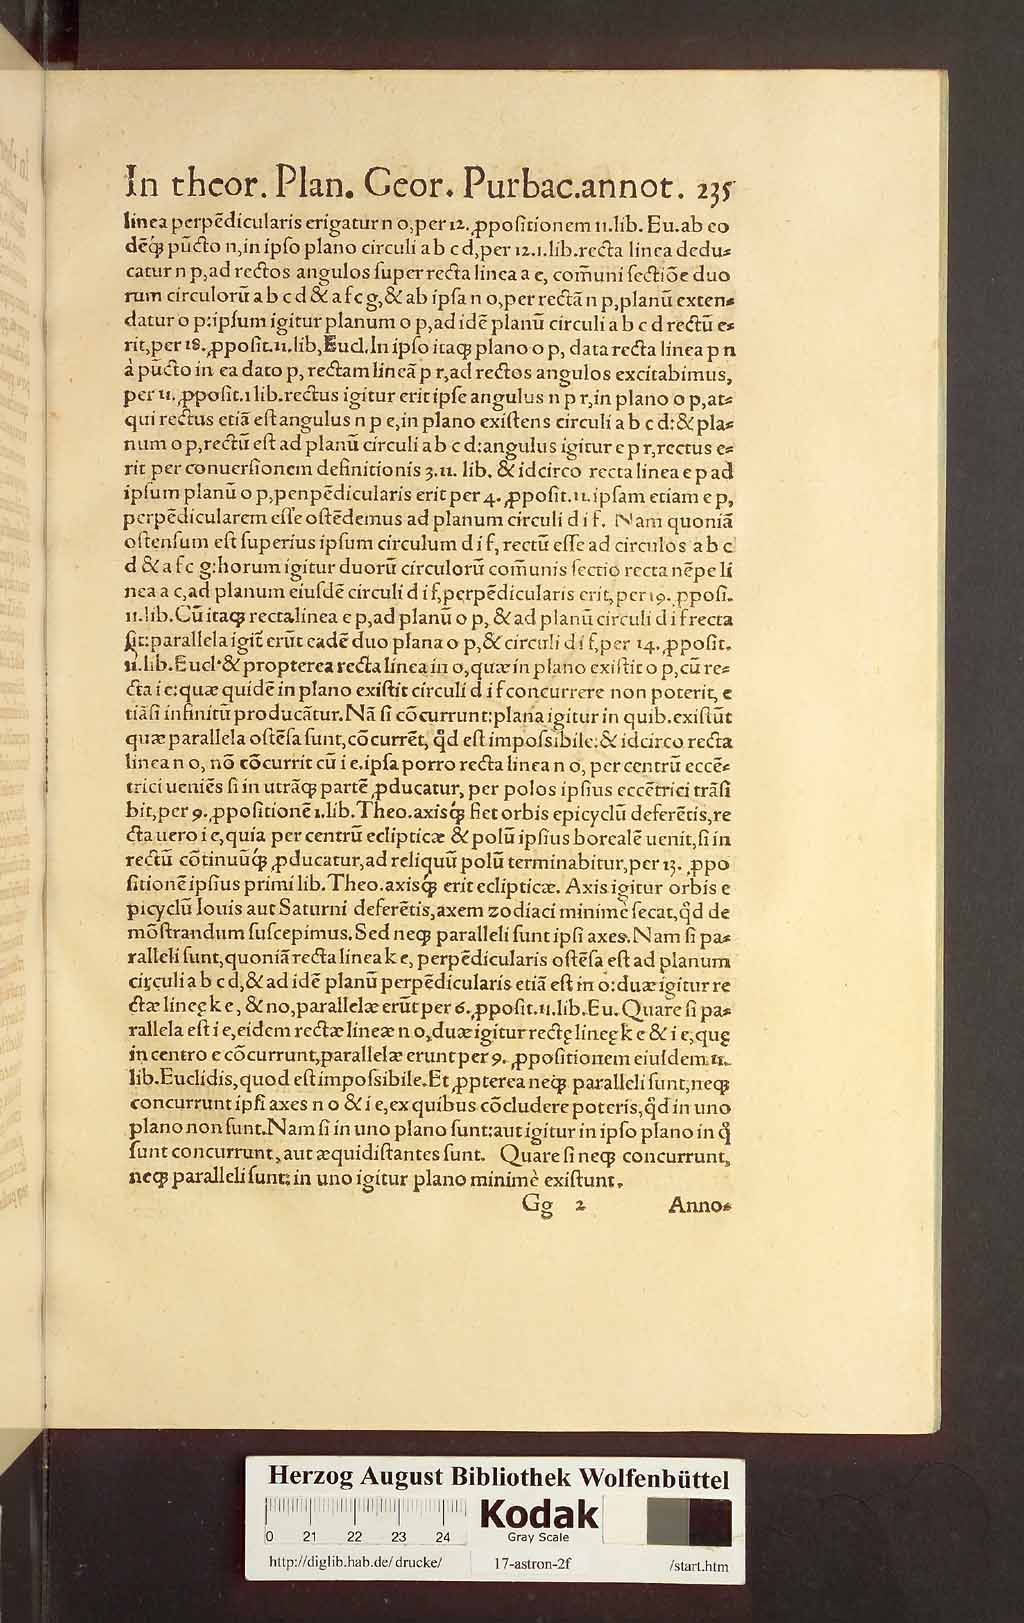 In theor. Plan. Geor. Purbac.annot. 235
linea perpēdicularis erigatur n o, per 12. ꝓpositionem 11. lib. Eu. ab eo
dēq́; pūcto n, in ipso plano circuli a b c d, per 12. 1. lib. recta linea dedu-
catur n p, ad rectos angulos super recta linea a e, com̄uni sectiōe duo
rum circulorū a b c d & a f c g, & ab ipsa n o, per rectā n p, planū exten-
datur o p: ipsum igitur planum o p, ad idē planū circuli a b c d rectū e-
rit, per 18. ꝓposit. 11. lib, Eucl. In ipso itaq; plano o p, data recta linea p n
à pūcto in ea dato p, rectam lineā p r, ad rectos angulos excitabimus,
per 11. ꝓposit. 1 lib. rectus igitur erit ipse angulus n p r, in plano o p, at-
qui rectus etiā est angulus n p e, in plano existens circuli a b c d: & pla-
num o p, rectū est ad planū circuli a b c d: angulus igitur e p r, rectus e-
rit per conuersionem definitionis 3. 11. lib. & idcirco recta linea e p ad
ipsum planū o p, penpēdicularis erit per 4. ꝓposit. 11. ipsam etiam e p,
perpēdicularem esse ostēdemus ad planum circuli d i f. Nam quoniā
ostensum est superius ipsum circulum d i f, rectū esse ad circulos a b c
d & a f c g: horum igitur duorū circulorū com̄unis sectio recta nēpe li
nea a c, ad planum eiusdē circuli d i f, perpēdicularis erit, per 19. ꝓposi.
11. lib. Cū itaq; recta linea e p, ad planū o p, & ad planū circuli d i f recta
sit: parallela igit̄ erūt eadē duo plana o p, & circuli d i f, per 14. ꝓposit.
11. lib. Eucl. & propterea recta linea in o, quæ in plano existit o p, cū re-
cta i e: quæ quidē in plano existit circuli d i f concurrere non poterit, e
tiāsi infinitū producātur. Nā si cōcurrunt: plana igitur in quib. existūt
quæ parallela ostēsa sunt, cōcurrēt, q̊d est impossibile: & idcirco recta
linea n o, nō cōcurrit cū i e. ipsa porro recta linea n o, per centrū eccē-
trici ueniēs si in utrāq; partē ꝓducatur, per polos ipsius eccētrici trāsi
bit, per 9. ꝓpositionē 1. lib. Theo. axisq́; fiet orbis epicyclū deferētis, re
cta uero i e, quia per centrū eclipticæ & polū ipsius borealē uenit, si in
rectū cōtinuūq́; ꝓducatur, ad reliquū polū terminabitur, per 13. ꝓpo
sitionē ipsius primi lib. Theo. axisq́; erit eclipticæ. Axis igitur orbis e
picyclū Iouis aut Saturni deferētis, axem zodiaci minimè secat, q̊d de
mōstrandum suscepimus. Sed neq; paralleli sunt ipsi axes. Nam si pa-
ralleli sunt, quoniā recta linea k e, perpēdicularis ostēsa est ad planum
circuli a b c d, & ad idē planū perpēdicularis etiā est in o: duæ igitur re
ctæ lineę k e, & no, parallelæ erūt per 6. ꝓposit. 11. lib. Eu. Quare si pa-
rallela est i e, eidem rectæ lineæ n o, duæ igitur rectę lineę k e & i e, quę
in centro e cōcurrunt, parallelæ erunt per 9. ꝓpositionem eiusdem 11.
lib. Euclidis, quod est impossibile. Et ꝓpterea neq; paralleli sunt, neq;
concurrunt ipsi axes n o & i e, ex quibus cōcludere poteris, q̊d in uno
plano non sunt. Nam si in uno plano sunt: aut igitur in ipso plano in q̊
sunt concurrunt, aut æquidistantes sunt. Quare si neq; concurrunt,
neq; paralleli sunt: in uno igitur plano minimè existunt.
Gg 2 Anno-
Herzog August Bibliothek Wolfenbüttel
Kodak
Gray Scale
0 21 22 23 24
http://diglib.hab.de/drucke/ 17-astron-2f /start.htm